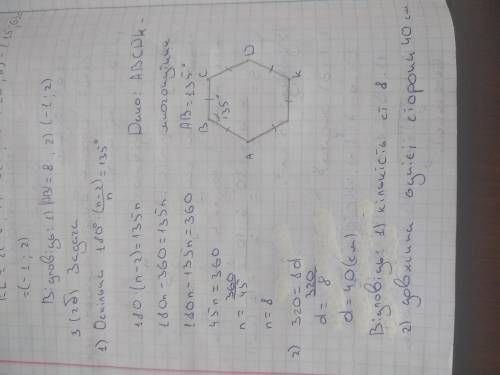 = (-1 ; 2)
Відповідь: 1) = 8, 2) (-1 ; 2)
3 (2б) Задача
1) Оскільки 180° (n-2) / n = 135°
180 (n-2) = 135n
180n - 360 = 135n
180n - 135n = 360
45n = 360
n = 360/45
n = 8
Дано: ABCDK -
многокутник
AB = 135°
A
B
C
D
K
135°
2) 320 = 8d
d = 320/8
d = 40 (см)
Відповідь: 1) кількість ст. 8.
2) довжина однієї сторони 40 см